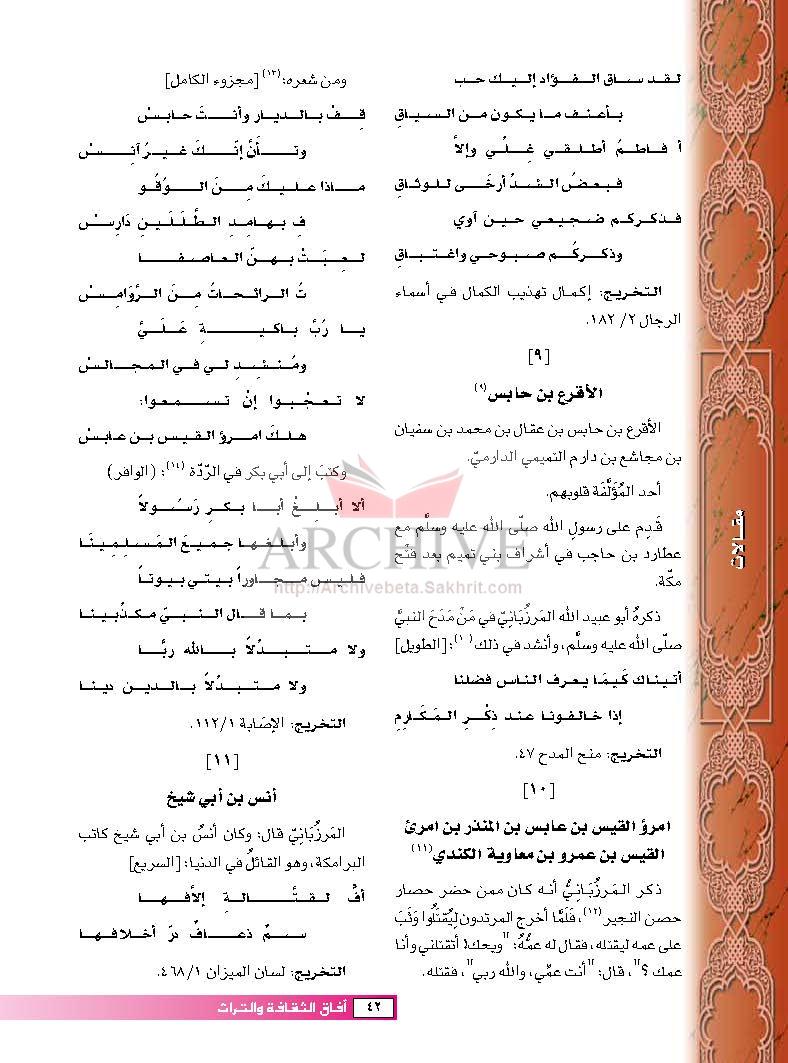 لقد ساق الفؤاد إليك حب
بأعنف ما يكون من السياقِ
أ فاطمُ أطلقي غِلّي وإلاَّ
فبعضُ الشدّ أرخَى للوثاقِ
فذكركم ضجيعي حين آوي
وذكركُم صبوحي واغتباقِ
التخريج: إكمال تهذيب الكمال في أسماء
الرجال ٢/ ١٨٢.
[٩]
الأقرع بن حابس(٩)
الأقرع بن حابس بن عقال بن محمد بن سفيان
بن مجاشع بن دارم التميمي الدارميّ.
أحد المُؤَلَّفَة قلوبهم.
قَدِم على رسولِ الله صلّى الله عليه وسلَّم مع
عطارد بن حاجب في أشراف بني تميم بعد فتْح
مكّة.
ذكرهُ أبو عبيد الله المَرزُبَانِيّ في مَنْ مَدَحَ النبيَّ
صلّى الله عليه وسلَّم، وأنشد في ذلك(١٠): [الطويل]
أتيناك كَيمَا يعرف الناس فضلنا
إذا خالفونا عند ذِكْرِ المَكَارِمِ
التخريج: منح المدح ٤٧.
[١٠]
امرؤ القيس بن عابس بن المنذر بن امرئ
القيس بن عمرو بن معاوية الكندي(١١)
ذكر المَرزُبَانِيُّ أنه كان ممن حضر حصار
حصن النجير(١٢)، فَلَمَّا أخرج المرتدون لِيُقتَلُوا وَثَبَ
على عمه ليقتله، فقال له عمُّهُ: "ويحك! أتقتلني وأنا
عمك ؟"، قال: "أنت عمِّي، والله ربي"، فقتله.
ومن شعره:(١٣) [مجزوء الكامل]
قِفْ بالديار وأنتَ حابسْ
وتأَنَّ إنّكَ غيرُ آنِسْ
ماذا عليكَ مِنَ الوُقُو
فِ بهامِدِ الطَّلَلَينِ دَارِسْ
لعِبَتْ بهنّ العاصفا
تُ الرائحاتُ مِنَ الرَّوَامِسْ
يا رُبَّ باكيةٍ عَلَيَّ
ومُنشِدٍ لي في المجالسْ
لا تعجْبوا إنْ تسمعوا:
هلكَ امرؤ القيس بن عابسْ
وكتبَ إلى أبي بكر في الرّدّة (١٤): (الوافر)
ألا أبلِغْ أبا بكرٍ رَسُولاً
وأبلغها جميعَ المُسلِمِينَا
فليس مجاوراً بيتي بيوتاً
بما قال النبيّ مكذّبينا
ولا متبدّلاً بالله ربَّا
ولا متبدّلاً بالدين دينا
التخريج: الإصَابة ١١٢/١.
[١١]
أنس بن أبي شيخ
المَرزُبَانِيّ قال: وكان أنسُ بن أبي شيخ كاتب
البرامكة، وهو القائلُ في الدنيا: [السريع]
أفٌّ لقتَّالةِ إلأفِها
سمٌّ ذعافٌ درّ أخلافها
التخريج: لسان الميزان ٤٦٨/١.
مقالات
ARCHIVE
http://Archivebeta.Sakhrit.com
٤٢ آفاق الثقافة والتراث